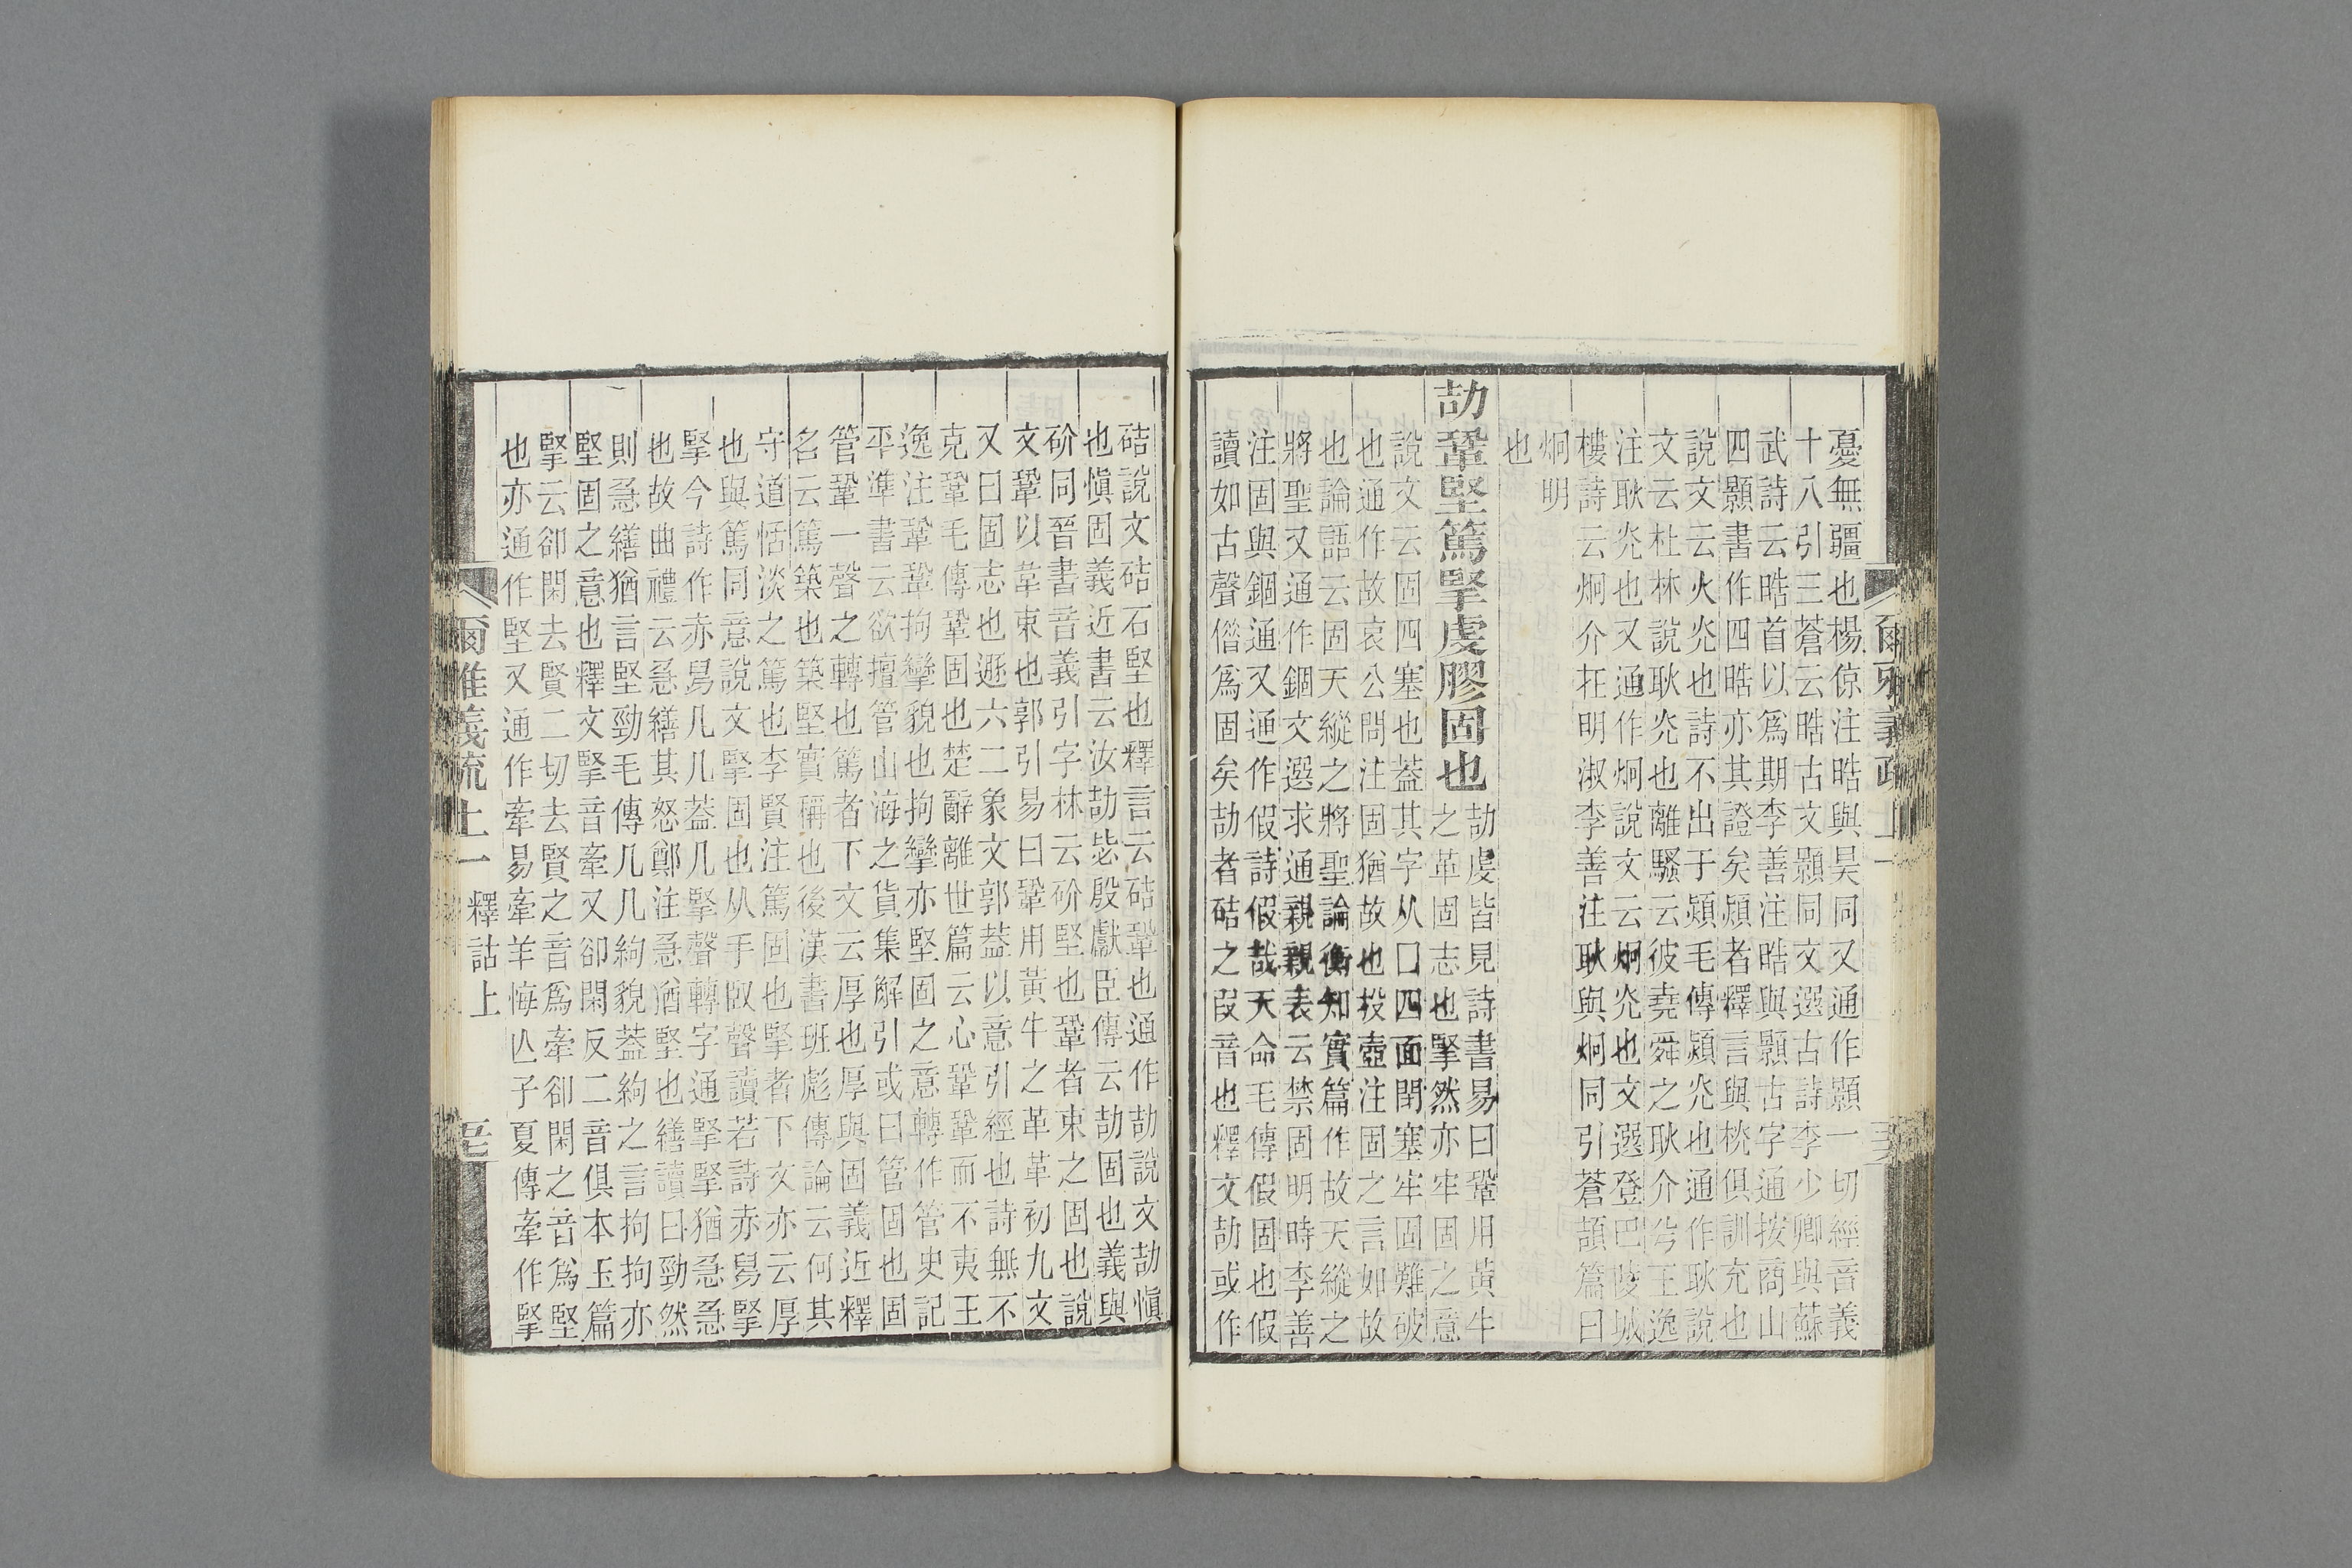 憂無疆也楊倞注晧與昊同又通作顥一切經音義
十八引三蒼云晧古文顥同文選古詩李少卿與蘇
武詩云晧首以爲期李善注晧與顥古字通按商山
四顥書作四晧亦其證矣熲者釋言與桄俱訓充也
說文云火炗也詩不出于熲毛傳熲炗也通作耿說
文云杜林說耿炗也離騷云彼堯舜之耿介兮王逸
注耿炗也又通作炯說文云炯炗也文選登巴陵城
樓詩云炯介在明淑李善注耿與炯同引蒼頡篇曰
炯明
也
劼鞏堅篤掔虔膠固也
劼虔皆見詩書易曰鞏用黃牛
之革固志也掔然亦牢固之意
說文云固四塞也葢其字从囗四面閉塞牢固難破
也通作故哀公問注固猶故也投壺注固之言如故
也論語云固天縱之將聖論衡知實篇作故天縱之
將聖又通作錮文選求通親親表云禁固明時李善
注固與錮通又通作假詩假哉天命毛傳假固也假
讀如古聲偺爲固矣劼者硈之叚音也釋文劼或作
硈說文硈石堅也釋言云硈鞏也通作劼說文劼愼
也愼固義近書云汝劼毖殷獻臣傳云劼固也義與
砎同晉書音義引字林云砎堅也鞏者束之固也說
文鞏以韋束也郭引易曰鞏用黃牛之革革初九文
又曰固志也遯六二象文郭葢以意引經也詩無不
克鞏毛傳鞏固也楚辭離世篇云心鞏鞏而不夷王
逸注鞏鞏拘攣貌也拘攣亦堅固之意轉作管史記
平準書云欲擅管山海之貨集解引或曰管固也固
管鞏一聲之轉也篤者下文云厚也厚與固義近釋
名云篤築也築堅實稱也後漢書班彪傳論云何其
守道恬淡之篤也李賢注篤固也掔者下文亦云厚
也與篤同意說文掔固也从手臤聲讀若詩赤舄掔
掔今詩作赤舄几几葢几掔聲轉字通掔掔猶急急
也故曲禮云急繕其怒鄭注急猶堅也繕讀曰勁然
則急繕猶言堅勁毛傳几几絇貌葢絇之言拘拘亦
堅固之意也釋文掔音牽又卻閑反二音俱本玉篇
掔云卻閑去賢二切去賢之音爲牽卻閑之音爲堅
也亦通作堅又通作牽易牽羊悔亾子夏傳牽作掔
爾雅義疏 上一 釋詁上